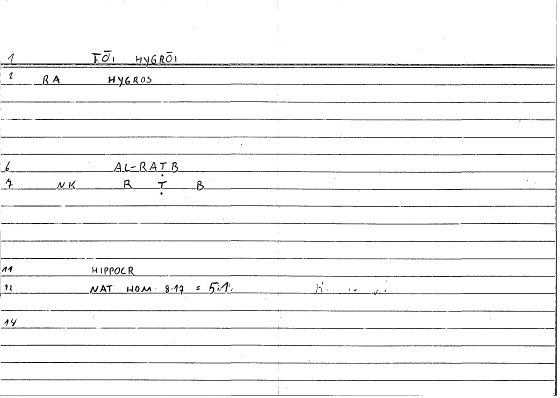 1 TŌI HYGRŌI
2 RA HYGROS
6 AL-RAṬB
7 NK R Ṭ B
11 HIPPOCR
12 NAT HOM 8.17 =
14